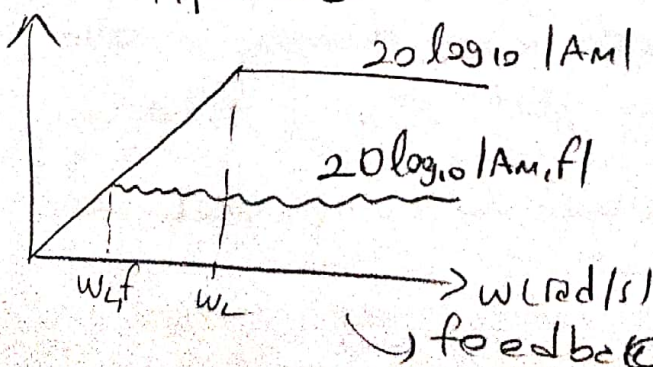 20 log10 |AM|
20log10 |AM,f|
wL,f wL w(rad/s)
feedback